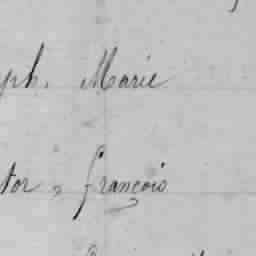 ph. Marie
tor, françois